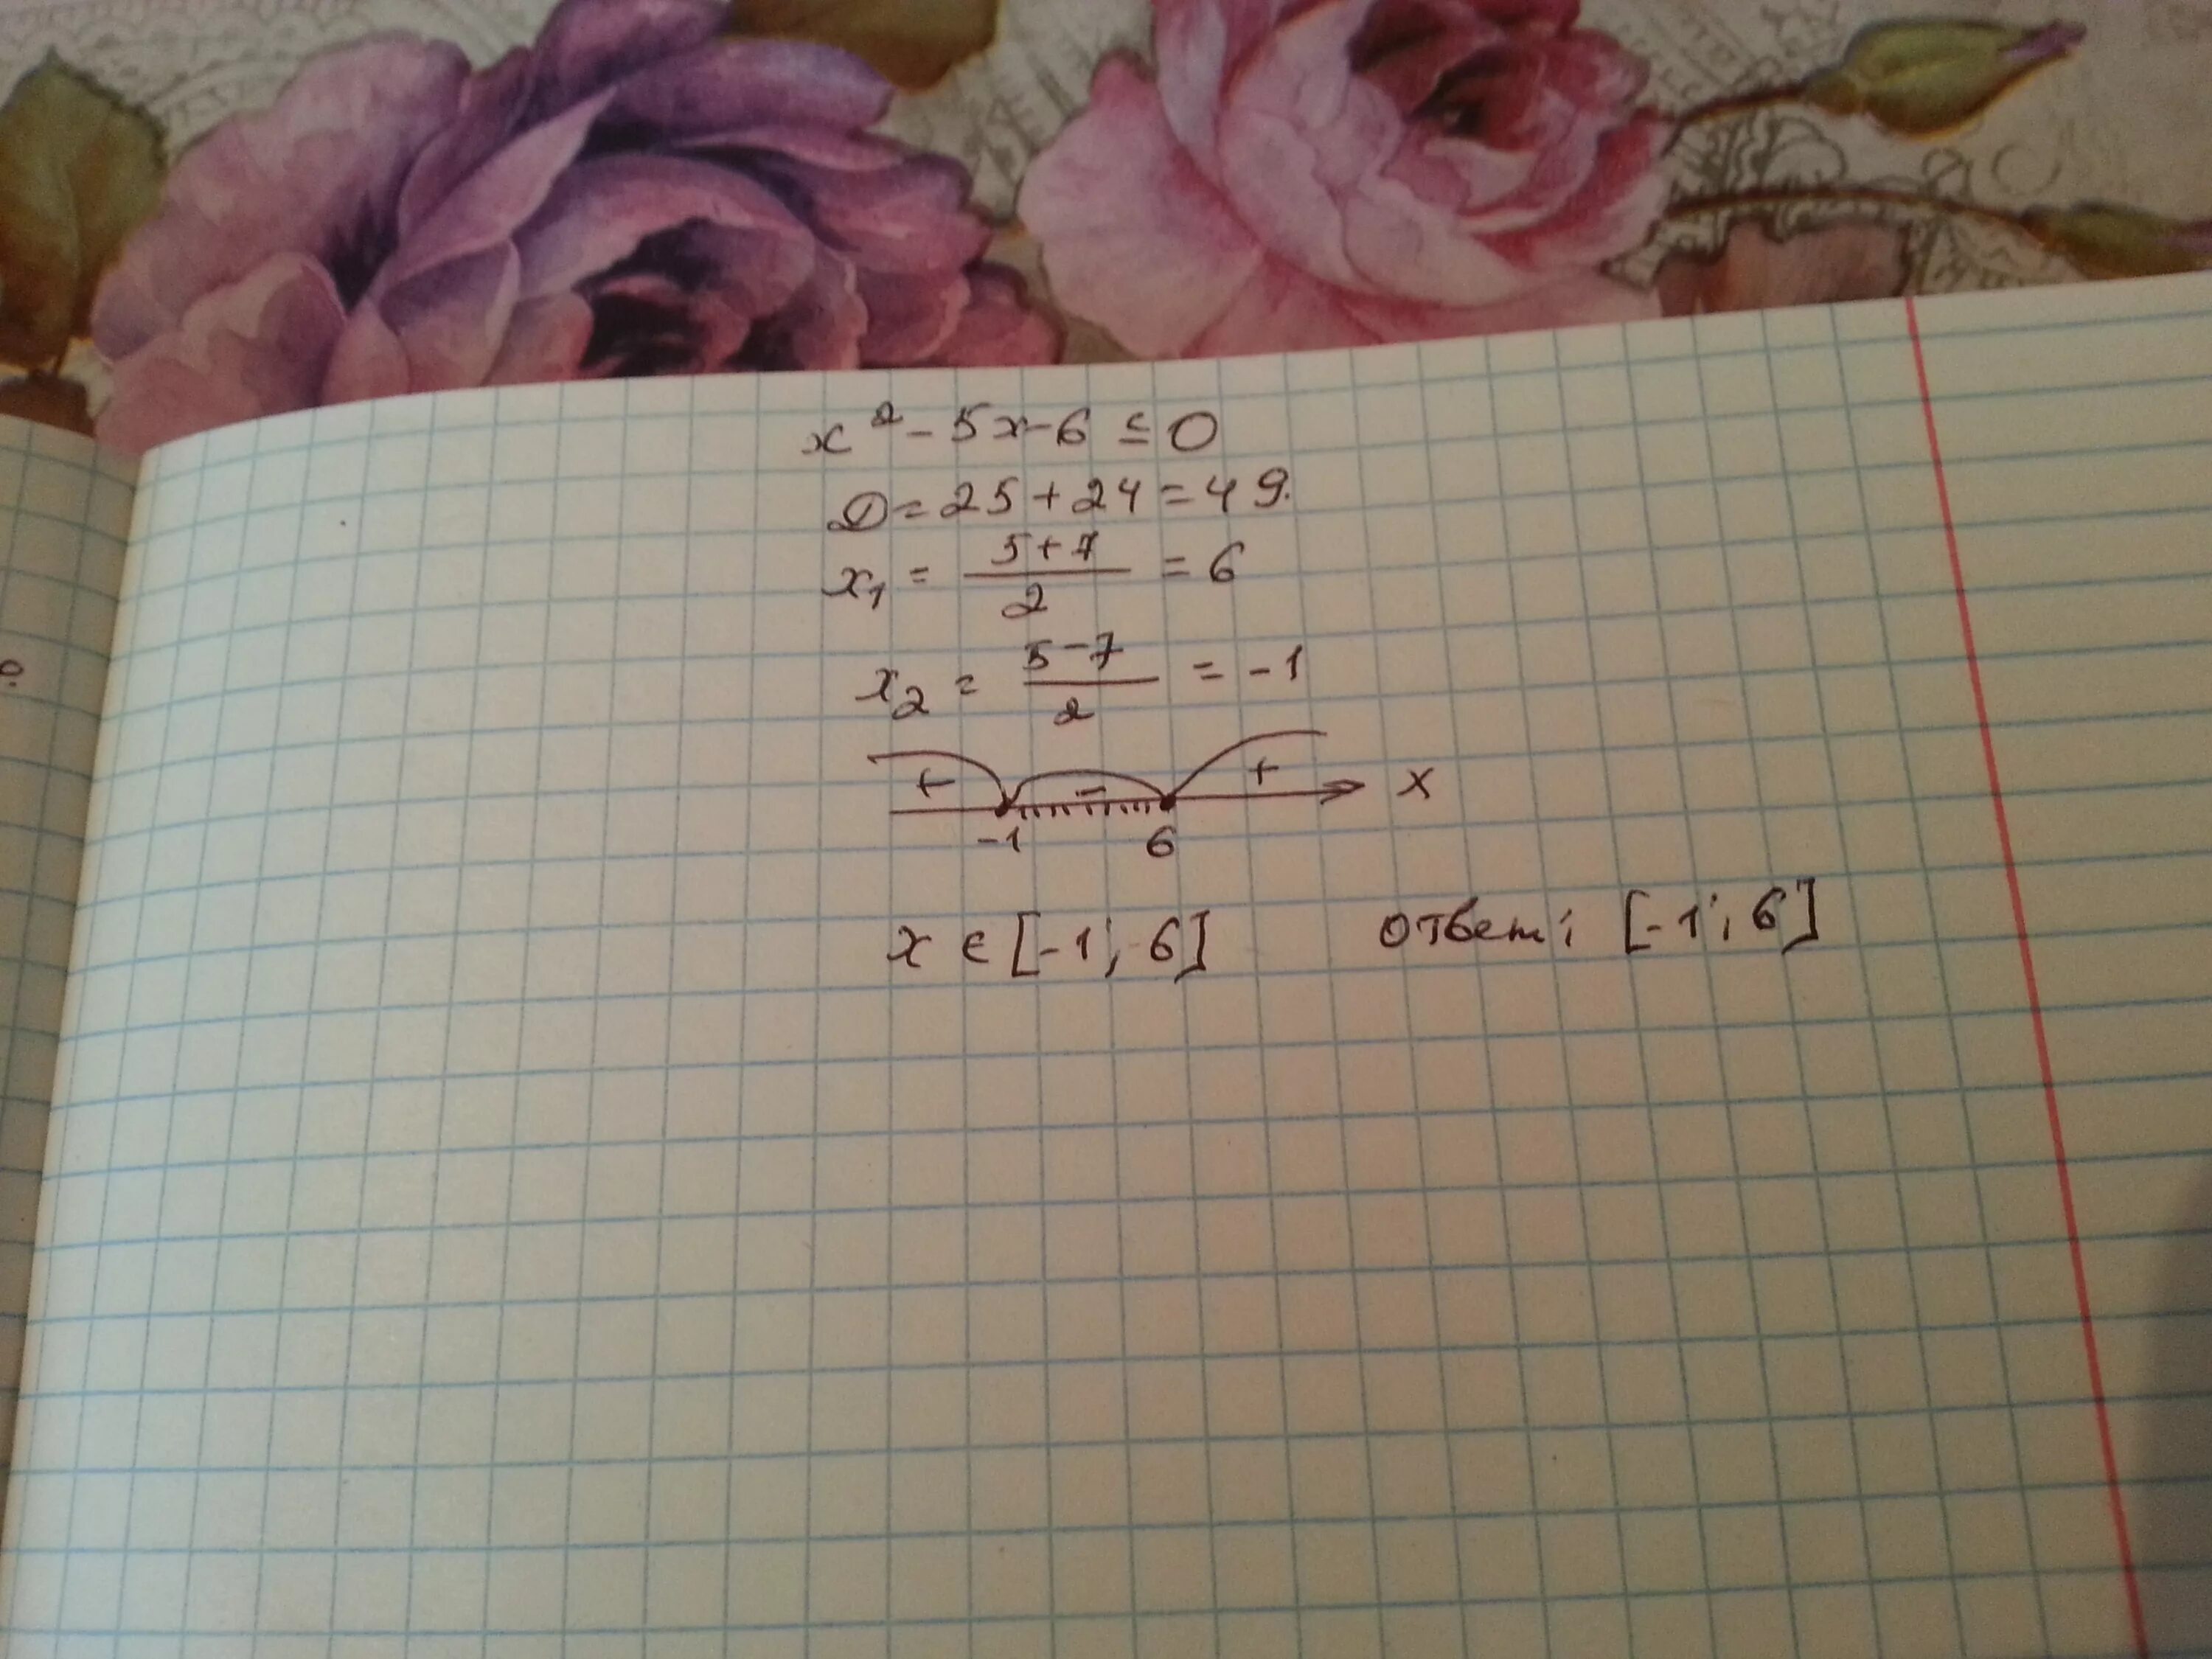 x² - 5x - 6 ≤ 0
D = 25 + 24 = 49.
x₁ = (5 + 7)/2 = 6
x₂ = (5 - 7)/2 = -1
+ - + x
-1 6
x ∈ [-1; 6] ответ: [-1; 6]